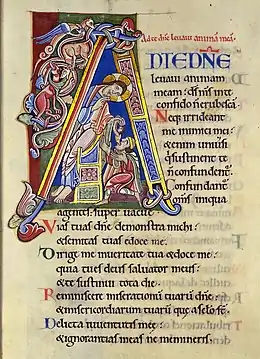 Ad te dñe levavi animā meā.
AD TE DÑE
levavi animam
meam: ds ms in te
confido n erubescā.
Neq; irrideant
me inimici mei:
& enim universi
qui sustinent te
n confundent̄.
Confundant̄
om̄s iniqua
agentes: super vacue.
Vias tuas dñe demonstra michi:
& semitas tuas edoce me.
Dirige me in veritate tua & doce me:
quia tu es deus salvator meus
& te sustinui tota die.
Reminiscere miserationū tuarū dñe:
& misericordiarum tuarū que a sclo st̄.
Delicta iuventutis meę:
& ignorantias meas ne memineris.